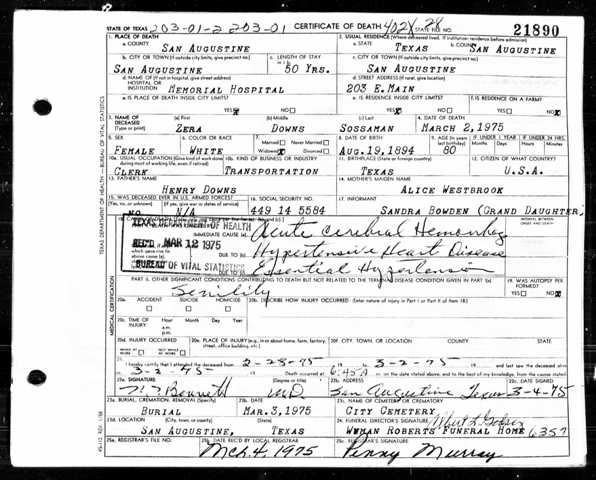 203-01-2 203-01
STATE OF TEXAS CERTIFICATE OF DEATH STATE FILE NO. 21890
1. PLACE OF DEATH 2. USUAL RESIDENCE (Where deceased lived. If institution: residence before admission)
a. COUNTY a. STATE b. COUNTY
SAN AUGUSTINE TEXAS SAN AUGUSTINE
b. CITY OR TOWN (If outside city limits, give precinct no.) c. LENGTH OF STAY c. CITY OR TOWN (If outside city limits, give precinct no.)
SAN AUGUSTINE 50 YRS. SAN AUGUSTINE
d. NAME OF (If not in hospital, give street address) d. STREET ADDRESS
HOSPITAL OR INSTITUTION MEMORIAL HOSPITAL 203 E. MAIN
e. IS PLACE OF DEATH INSIDE CITY LIMITS? e. IS RESIDENCE INSIDE CITY LIMITS? f. IS RESIDENCE ON A FARM?
YES NO YES NO YES NO
3. NAME OF DECEASED (a) First (b) Middle (c) Last 4. DATE OF DEATH
(Type or print) ZERA DOWNS SOSSAMAN MARCH 2, 1975
5. SEX 6. COLOR OR RACE 7. Married Never Married 8. DATE OF BIRTH 9. AGE (In years last birthday) IF UNDER 1 YEAR IF UNDER 24 HRS.
FEMALE WHITE Widowed Divorced AUG. 19, 1894 80 Months Days Hours Minutes
10a. USUAL OCCUPATION (Give kind of work done during most of working life, even if retired) 10b. KIND OF BUSINESS OR INDUSTRY 11. BIRTHPLACE (State or foreign country) 12. CITIZEN OF WHAT COUNTRY?
CLERK TRANSPORTATION TEXAS U.S.A.
13. FATHER'S NAME 14. MOTHER'S MAIDEN NAME
HENRY DOWNS ALICE WESTBROOK
15. WAS DECEASED EVER IN U.S. ARMED FORCES? 16. SOCIAL SECURITY NO. 17. INFORMANT
(Yes, no, or unknown) (If yes, give war or dates of service)
NO N/A 449 14 5584 SANDRA BOWDEN (GRAND DAUGHTER)
TEXAS DEPARTMENT OF HEALTH
IMMEDIATE CAUSE (a) Acute Cerebral Hemorrhag
REC'D MAR 12 1975
DUE TO (b) Hypertensive Heart Disease
BUREAU OF VITAL STATISTICS
DUE TO (c) Essential Hypertension
PART II. OTHER SIGNIFICANT CONDITIONS CONTRIBUTING TO DEATH BUT NOT RELATED TO THE TERMINAL DISEASE CONDITION GIVEN IN PART I(a) 19. WAS AUTOPSY PERFORMED?
Senility YES NO
20a. ACCIDENT SUICIDE HOMICIDE 20b. DESCRIBE HOW INJURY OCCURRED (Enter nature of injury in Part I or Part II of item 18)
20c. TIME OF INJURY Hour Month Day Year
a.m.
p.m.
20d. INJURY OCCURRED 20e. PLACE OF INJURY (e.g., in or about home, farm, factory, street, office building, etc.) 20f. CITY, TOWN, OR LOCATION COUNTY STATE
21. I hereby certify that I attended the deceased from 2-28-75 to 3-2-75 and last saw the deceased
3-2-75 Death occurred at 6:45 A m. on the date stated above, and to the best of my knowledge, from the causes stated.
22a. SIGNATURE (Degree or title) 22b. ADDRESS 22c. DATE SIGNED
Bennett M.D. San Augustine Texas 3-4-75
23a. BURIAL, CREMATION, REMOVAL (Specify) 23b. DATE 23c. NAME OF CEMETERY OR CREMATORY
BURIAL MAR. 3, 1975 CITY CEMETERY
23d. LOCATION (City, town, or county) (State) 24. FUNERAL DIRECTOR'S SIGNATURE
SAN AUGUSTINE, TEXAS WYMAN ROBERTS FUNERAL HOME 6357
25a. REGISTRAR'S FILE NO. 25b. DATE REC'D BY LOCAL REGISTRAR 25c. REGISTRAR'S SIGNATURE
Mch. 4, 1975 Penny Murray
TEXAS DEPARTMENT OF HEALTH — BUREAU OF VITAL STATISTICS
MEDICAL CERTIFICATION